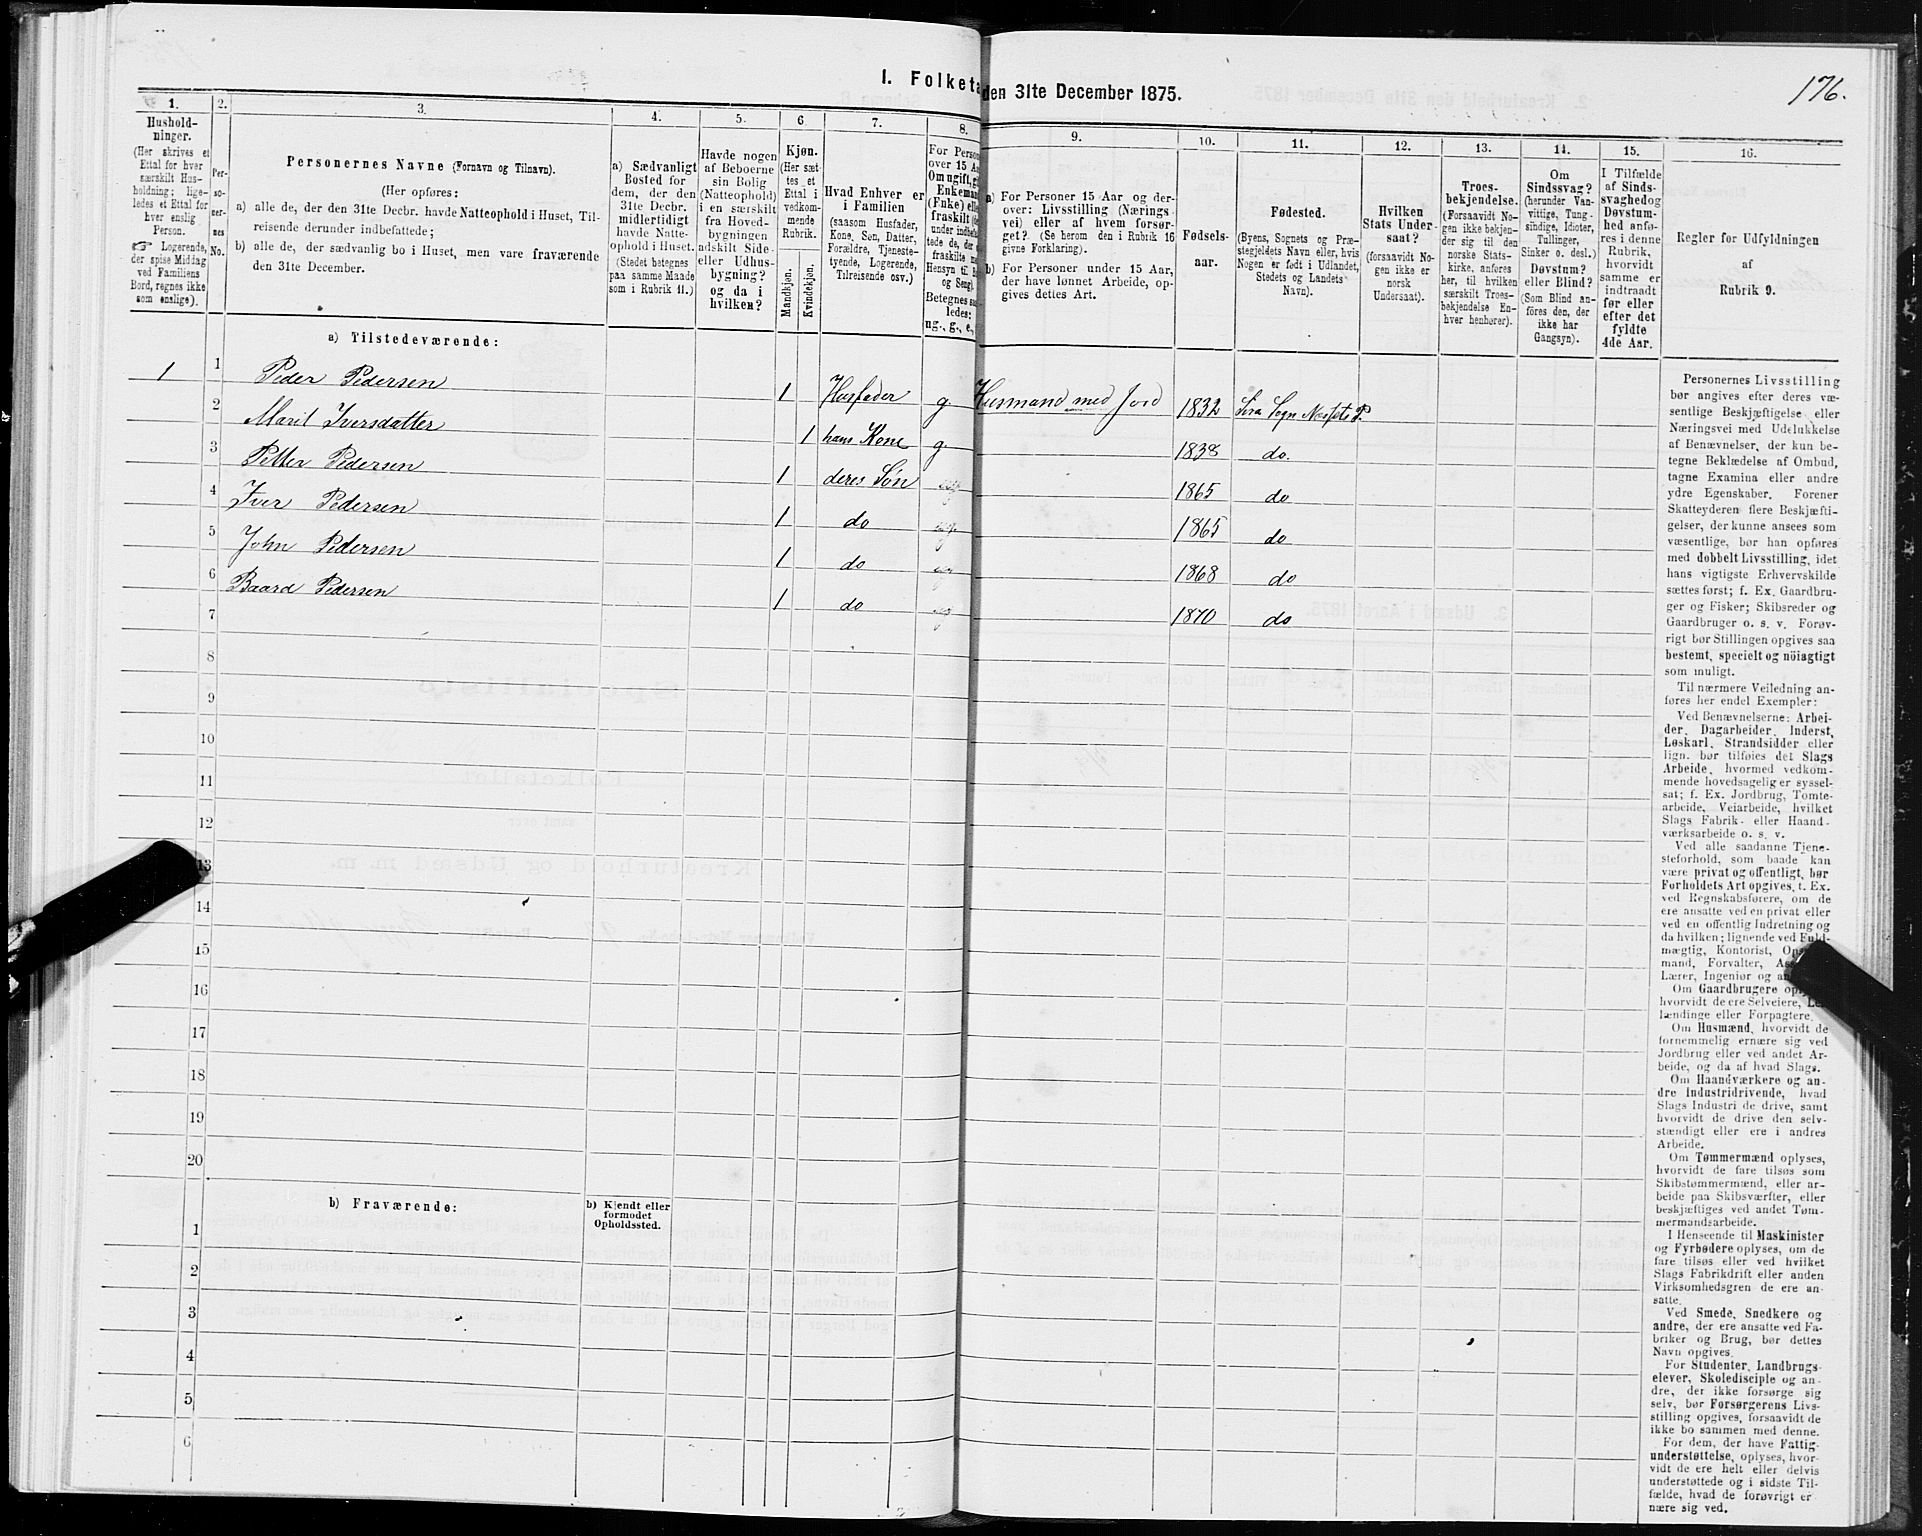 I. Folketa den 31te December 1875.
176.
1.
2.
3.
4.
5.
6.
7.
8.
9.
10.
11.
12.
13.
14.
15.
16.
Hushold-
ninger.
(Her skrives et
Ettal for hver
særskilt Hus-
holdning; lige-
ledes et Ettal for
hver enslig
Person.
☞ Logerende,
der spise Middag
ved Familiens
Bord, regnes ikke
som enslige).
Per-
so-
ner-
nes
No.
Personernes Navne (Fornavn og Tilnavn).
(Her opføres:
a) alle de, der den 31te Decbr. havde Natteophold i Huset, Til-
reisende derunder indbefattede;
b) alle de, der sædvanlig bo i Huset, men vare fraværende
den 31te December.
a) Sædvanligt
Bosted for
dem, der den
31te Decbr.
midlertidigt
havde Natte-
ophold i Huset.
(Stedet betegnes
paa samme Maade
som i Rubrik 11.)
Havde nogen
af Beboerne
sin Bolig
(Natteophold)
i en særskilt
fra Hoved-
bygningen
adskilt Side-
eller Udhus-
bygning?
og da i
hvilken?
Kjøn.
(Her sæt-
tes et
Ettal i
vedkom-
mende
Rubrik.
Mandkjøn.
Kvindekjøn.
Hvad Enhver er
i Familien
(saasom Husfader,
Kone, Søn, Datter,
Forældre, Tjeneste-
tyende, Logerende,
Tilreisende osv.)
For Person
over 15 Aa
Om ugift, gi
Enkemand
(Enke) elle
fraskilt (de
under indbefat-
tede de, der
fraskilte m
Hensyn til B
og Seng).
Betegnes saa
ledes:
ug., g., e.,
a) For Personer 15 Aar og der-
over: Livsstilling (Nærings-
vei) eller af hvem forsør-
get? (Se herom den i Rubrik 16
givne Forklaring).
b) For Personer under 15 Aar,
der have lønnet Arbeide, op-
gives dettes Art.
Fødsels-
aar.
Fødested.
(Byens, Sognets og Præ-
stegjeldets Navn eller, hvis
Nogen er født i Udlandet,
Stedets og Landets
Navn).
Hvilken
Stats Under-
saat?
(forsaavidt No-
gen ikke er
norsk
Undersaat).
Troes-
bekjendelse.
(Forsaavidt No-
gen ikke bekjen-
der sig til den
norske Stats-
kirke, anføres
her, til hvilken
særskilt Troes-
bekjendelse En-
hver henhører).
Om
Sindssvag?
(herunder Van-
vittige, Tung-
sindige, Idioter,
Tullinger,
Sinker o. desl.)
Døvstum?
eller Blind?
(Som Blind an-
føres den, der
ikke har
Gangsyn).
I Tilfælde
af Sinds-
svaghed og
Døvstum-
hed anfø-
res i denne
Rubrik,
hvorvidt
samme er
indtraadt
før eller
efter det
fyldte
4de Aar.
Regler for Udfyldningen
af
Rubrik 9.
a) Tilstedeværende:
1 1 Peder Pedersen 1 Husfader g. Husmand med Jord 1832 Lira Sogn Nessets P.
2 Marit Iversdatter 1 hans Kone g 1838 do.
3 Petter Pedersen 1 deres Søn ug 1865 do
4 Iver Pedersen 1 do ug. 1865 do
5 John Pedersen 1 do ug 1868 do
6 Baard Pedersen 1 do ug 1870 do
7
8
9
10
11
12
13
14
15
16
17
18
19
20
b) Fraværende:
b) Kjendt eller
formodet
Opholdssted.
1
2
3
4
5
6
Personernes Livsstilling
bør angives efter deres væ-
sentlige Beskjæftigelse eller
Næringsvei med Udelukkelse
af Benævnelser, der kun be-
tegne Beklædelse af Ombud,
tagne Examina eller andre
ydre Egenskaber. Forener
Skatteyderen flere Beskjæfti-
gelser, der kunne ansees som
væsentlige, bør han opføres
med dobbelt Livsstilling, idet
hans vigtigste Erhvervskilde
sættes først; f. Ex. Gaardbru-
ger og Fisker; Skibsreder og
Gaardbruger o. s. v. Forøv-
rigt bør Stillingen opgives saa
bestemt, specielt og nöiagtigt
som muligt.
Til nærmere Veiledning an-
føres her endel Exempler:
Ved Benævnelserne: Arbei-
der, Dagarbeider, Inderst,
Løskarl, Strandsidder eller
lign. bør tilføies det Slags
Arbeide, hvormed vedkom-
mende hovedsagelig er syssel-
sat; f. Ex. Jordbrug, Tomte-
arbeide, Veiarbeide, hvilket
Slags Fabrik- eller Haand-
værksarbeide o. s. v.
Ved alle saadanne Tjene-
steforhold, som baade kan
være privat og offentligt, bør
Forholdets Art opgives, t. Ex.
ved Regnskabsførere, om de
ere ansatte ved en privat eller
ved en offentlig Indretning og
da hvilken; lignende ved Fuld-
mægtig, Kontorist, Op
mand, Forvalter, As
Lærer, Ingeniør og an
Om Gaardbrugere opl
hvorvidt de ere Selveiere, Le
lændinge eller Forpagtere.
Om Husmænd, hvorvidt de
fornemmelig ernære sig ved
Jordbrug eller ved andet Ar-
beide, og da af hvad Slags.
Om Haandværkere og an-
dre Industridrivende, hvad
Slags Industri de drive, samt
hvorvidt de drive den selv-
stændigt eller ere i andres
Arbeide.
Om Tømmermænd oplyses,
hvorvidt de fare tilsøs som
Skibstømmermænd, eller ar-
beide paa Skibsværfter, eller
beskjæftiges ved andet Tøm-
mermandsarbeide.
I Henseende til Maskinister
og Fyrbødere oplyses, om de
fare tilsøs eller ved hvilket
Slags Fabrikdrift eller anden
Virksomhedsgren de ere an-
satte.
Ved Smede, Snedkere og
andre, der ere ansatte ved Fa-
briker og Brug, bør dettes
Navn opgives.
For Studenter, Landbrugs-
elever, Skoledisciple og an-
dre, der ikke forsørge sig
selv, bør Forsørgerens Livs-
stilling opgives, forsaavidt de
ikke bo sammen med denne.
For dem, der have Fattig-
understøttelse, oplyses, hvor-
vidt de ere helt eller delvis
understøttede og i sidste Til-
fælde, hvad de forøvrigt er-
nære sig ved.